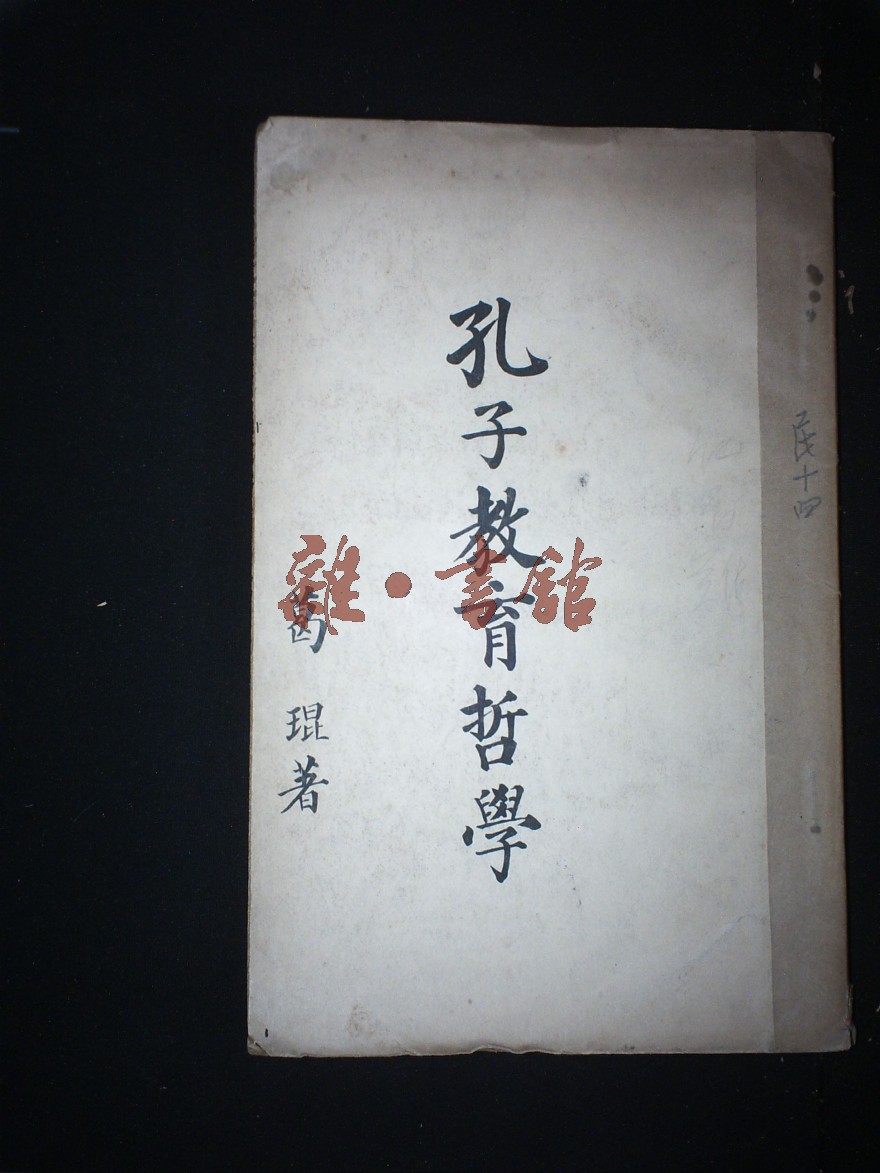 民十四
孔子教育哲學
葛琨著
雜·書館